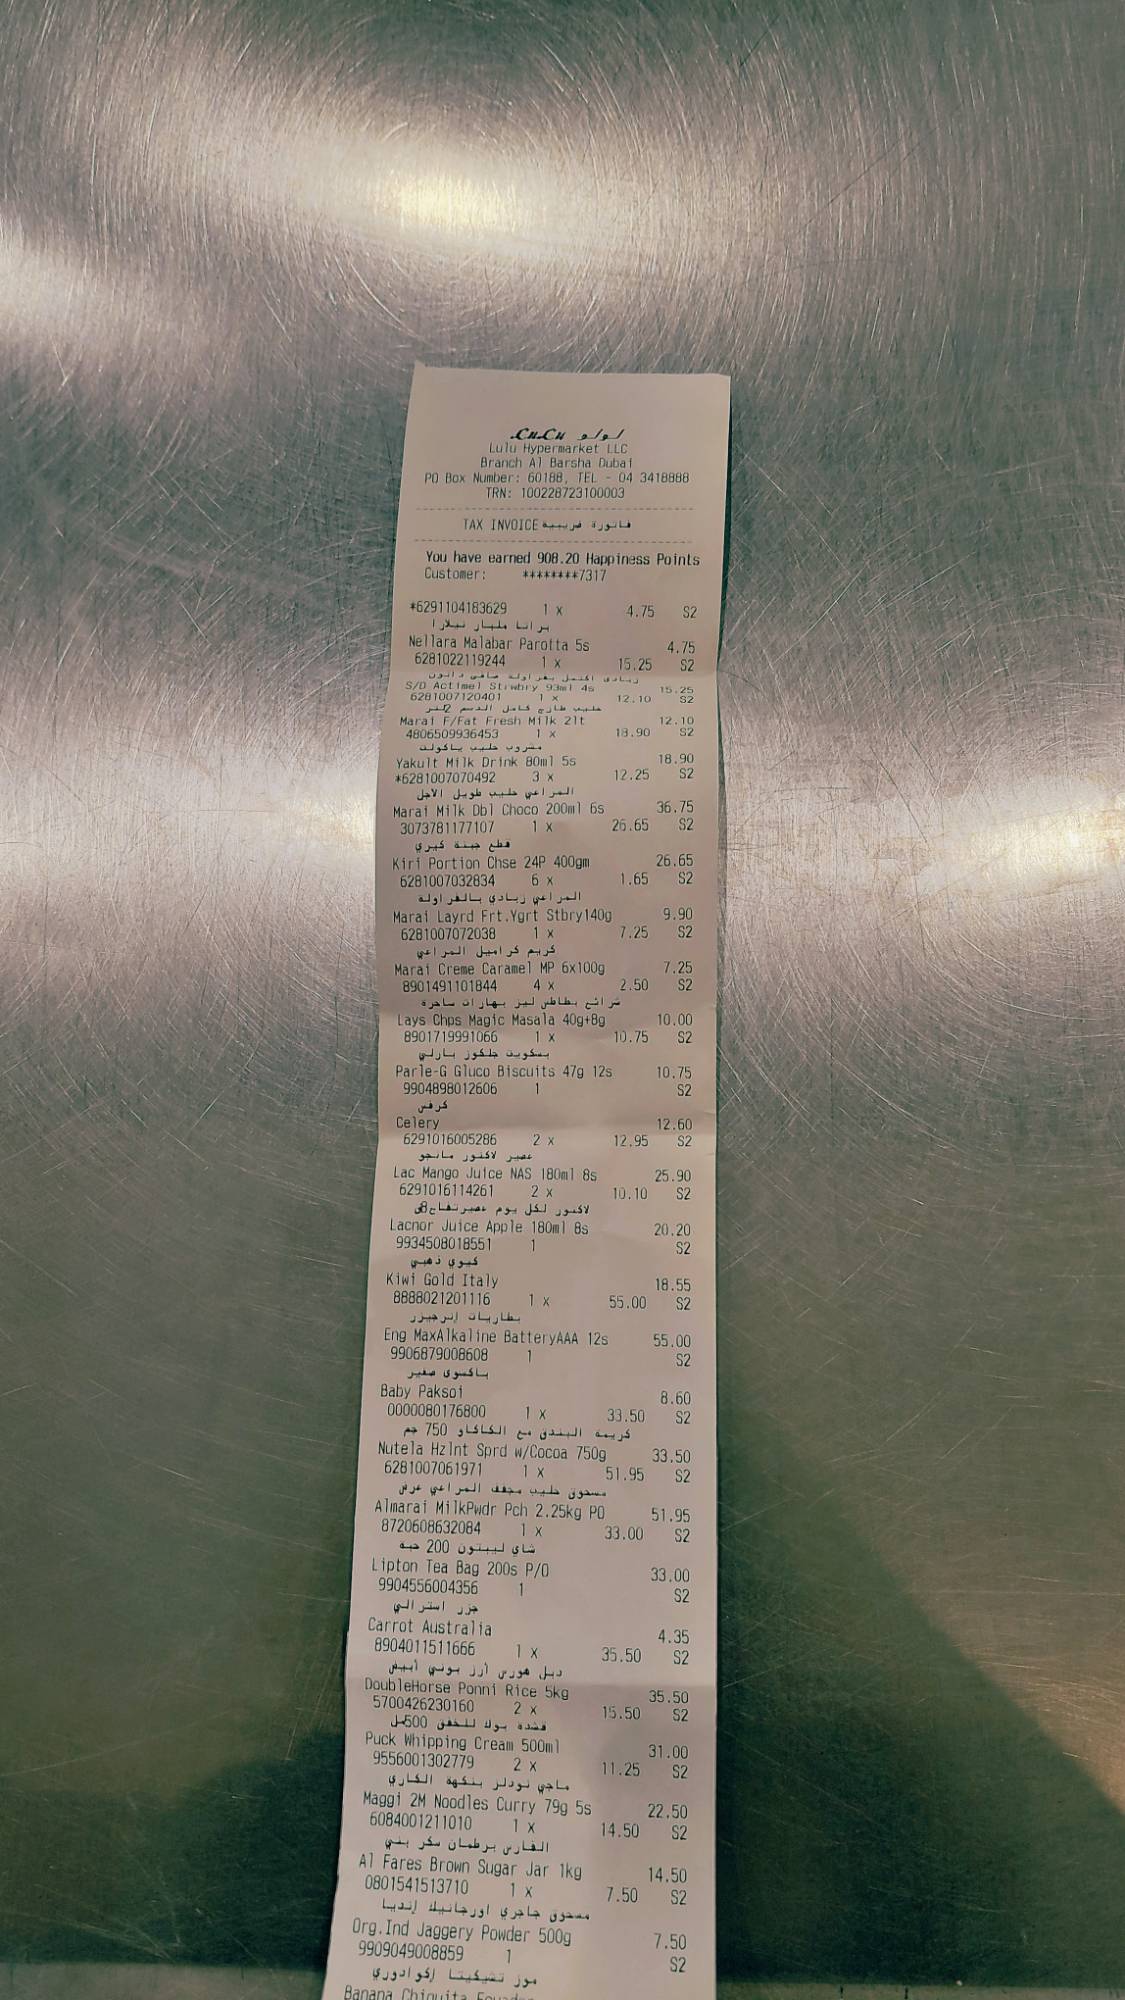 لولو LuLu
Lulu Hypermarket LLC
Branch Al Barsha Dubai
PO Box Number: 60188, TEL - 04 3418888
TRN: 100228723100003
TAX INVOICE فاتورة ضريبية
You have earned 908.20 Happiness Points
Customer: ********7317
*6291104183629 1 x 4.75 S2
براتا مليبار نيلارا
Nellara Malabar Parotta 5s 4.75
6281022119244 1 x 15.25 S2
زبادي اكتمل بفراولة صافي دانون
S/D Actimel Strwbry 93ml 4s 15.25
6281007120401 1 x 12.10 S2
حليب طازج كامل الدسم 2لتر
Marai F/Fat Fresh Milk 2lt 12.10
4806509936453 1 x 18.90 S2
مشروب حليب ياكولت
Yakult Milk Drink 80ml 5s 18.90
*6281007070492 3 x 12.25 S2
المراعي حليب طويل الاجل
Marai Milk Dbl Choco 200ml 6s 36.75
3073781177107 1 x 26.65 S2
قطع جبنة كيري
Kiri Portion Chse 24P 400gm 26.65
6281007032834 6 x 1.65 S2
المراعي زبادي بالفراولة
Marai Layrd Frt.Ygrt Stbry140g 9.90
6281007072038 1 x 7.25 S2
كريم كراميل المراعي
Marai Creme Caramel MP 6x100g 7.25
8901491101844 4 x 2.50 S2
شرائح بطاطس ليز بهارات ساحرة
Lays Chps Magic Masala 40g+8g 10.00
8901719991066 1 x 10.75 S2
بسكويت جلكوز بارلي
Parle-G Gluco Biscuits 47g 12s 10.75
9904898012606 1 S2
كرفس
Celery 12.60
6291016005286 2 x 12.95 S2
عصير لاكنور مانجو
Lac Mango Juice NAS 180ml 8s 25.90
6291016114261 2 x 10.10 S2
لاكنور لكل يوم عصيرتفاح8ق
Lacnor Juice Apple 180ml 8s 20.20
9934508018551 1 S2
كيوي ذهبي
Kiwi Gold Italy 18.55
8888021201116 1 x 55.00 S2
بطاريات إنرجيزر
Eng MaxAlkaline BatteryAAA 12s 55.00
9906879008608 1 S2
باكسوي صغير
Baby Paksoi 8.60
0000080176800 1 x 33.50 S2
كريمة البندق مع الكاكاو 750 جم
Nutela Hzlnt Sprd w/Cocoa 750g 33.50
6281007061971 1 x 51.95 S2
مسحوق حليب مجفف المراعي عرض
Almarai MilkPwdr Pch 2.25kg PO 51.95
8720608632084 1 x 33.00 S2
شاي ليبتون 200 حبة
Lipton Tea Bag 200s P/O 33.00
9904556004356 1 S2
جزر استرالي
Carrot Australia 4.35
8904011511666 1 x 35.50 S2
دبل هورس أرز بوني أبيض
DoubleHorse Ponni Rice 5kg 35.50
5700426230160 2 x 15.50 S2
قشدة بوك للخفق 500مل
Puck Whipping Cream 500ml 31.00
9556001302779 2 x 11.25 S2
ماجي نودلز بنكهة الكاري
Maggi 2M Noodles Curry 79g 5s 22.50
6084001211010 1 x 14.50 S2
الفارس برطمان سكر بني
Al Fares Brown Sugar Jar 1kg 14.50
0801541513710 1 x 7.50 S2
مسحوق جاجري اورجانيك إنديا
Org.Ind Jaggery Powder 500g 7.50
9909049008859 1 S2
موز تشيكيتا إكوادوري
Banana Chiquita